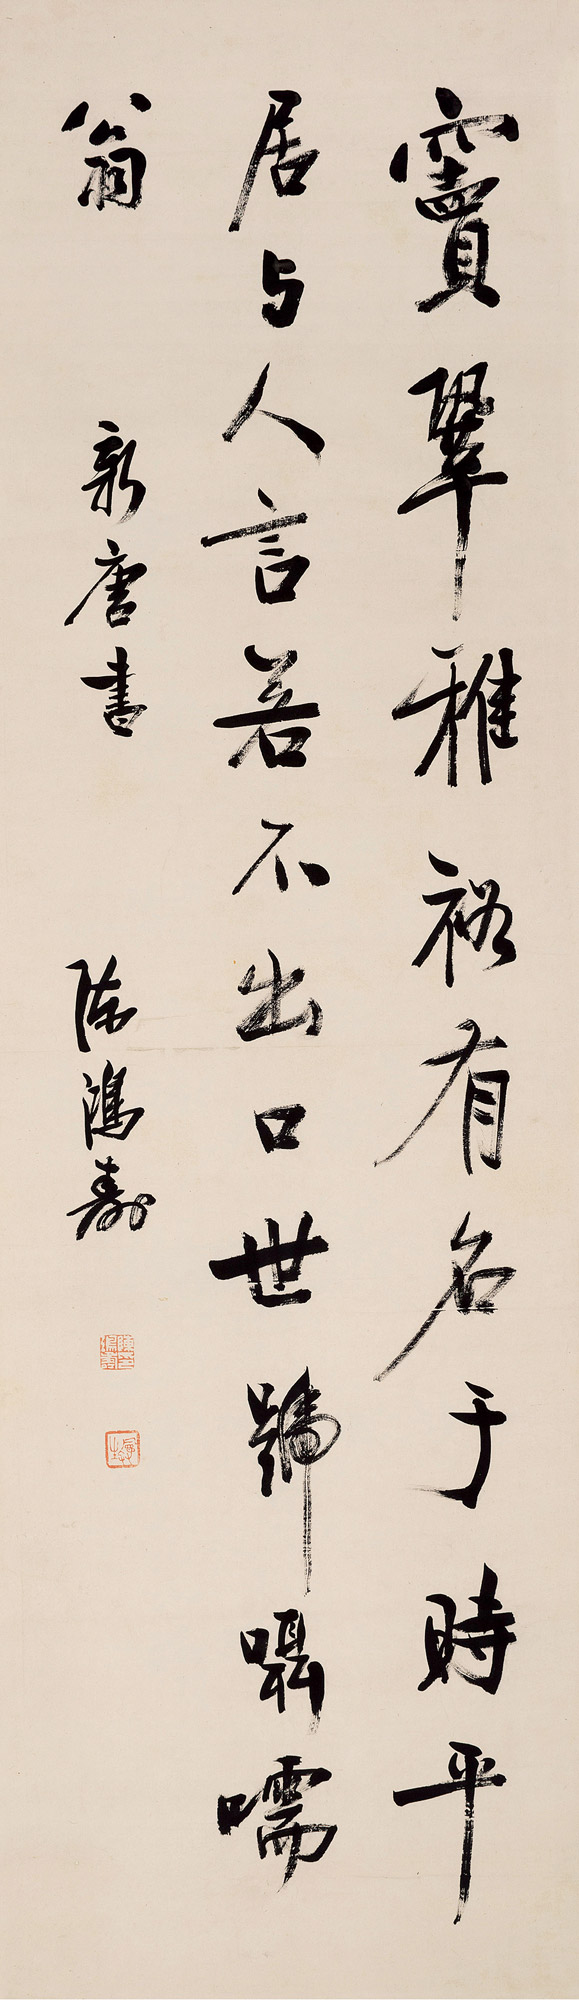 竇鞏雅裕有名于時平
居与人言若不出口世號囁嚅
翁
新唐書
陳鴻壽